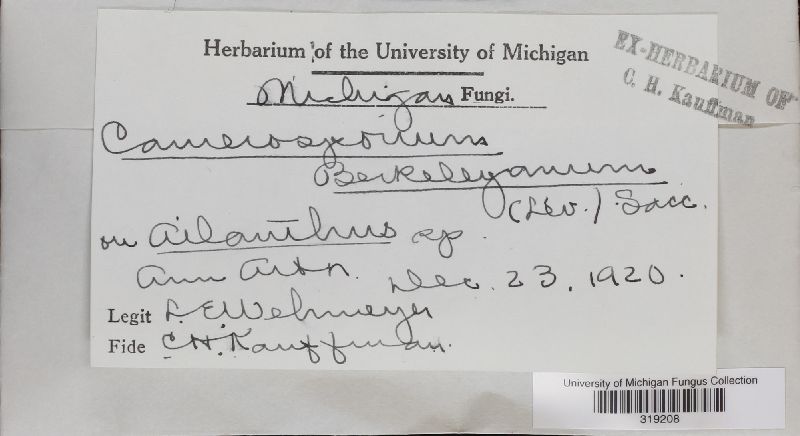 Herbarium of the University of Michigan
EX-HERBARIUM OF
C. H. Kauffman
Michigan Fungi.
Camarosporium
Berkeleyanum
(Lév.) Sacc.
on Ailanthus sp.
Ann Arbor. Dec. 23, 1920.
Legit L. E. Wehmeyer
Fide C. H. Kauffman.
University of Michigan Fungus Collection
319208